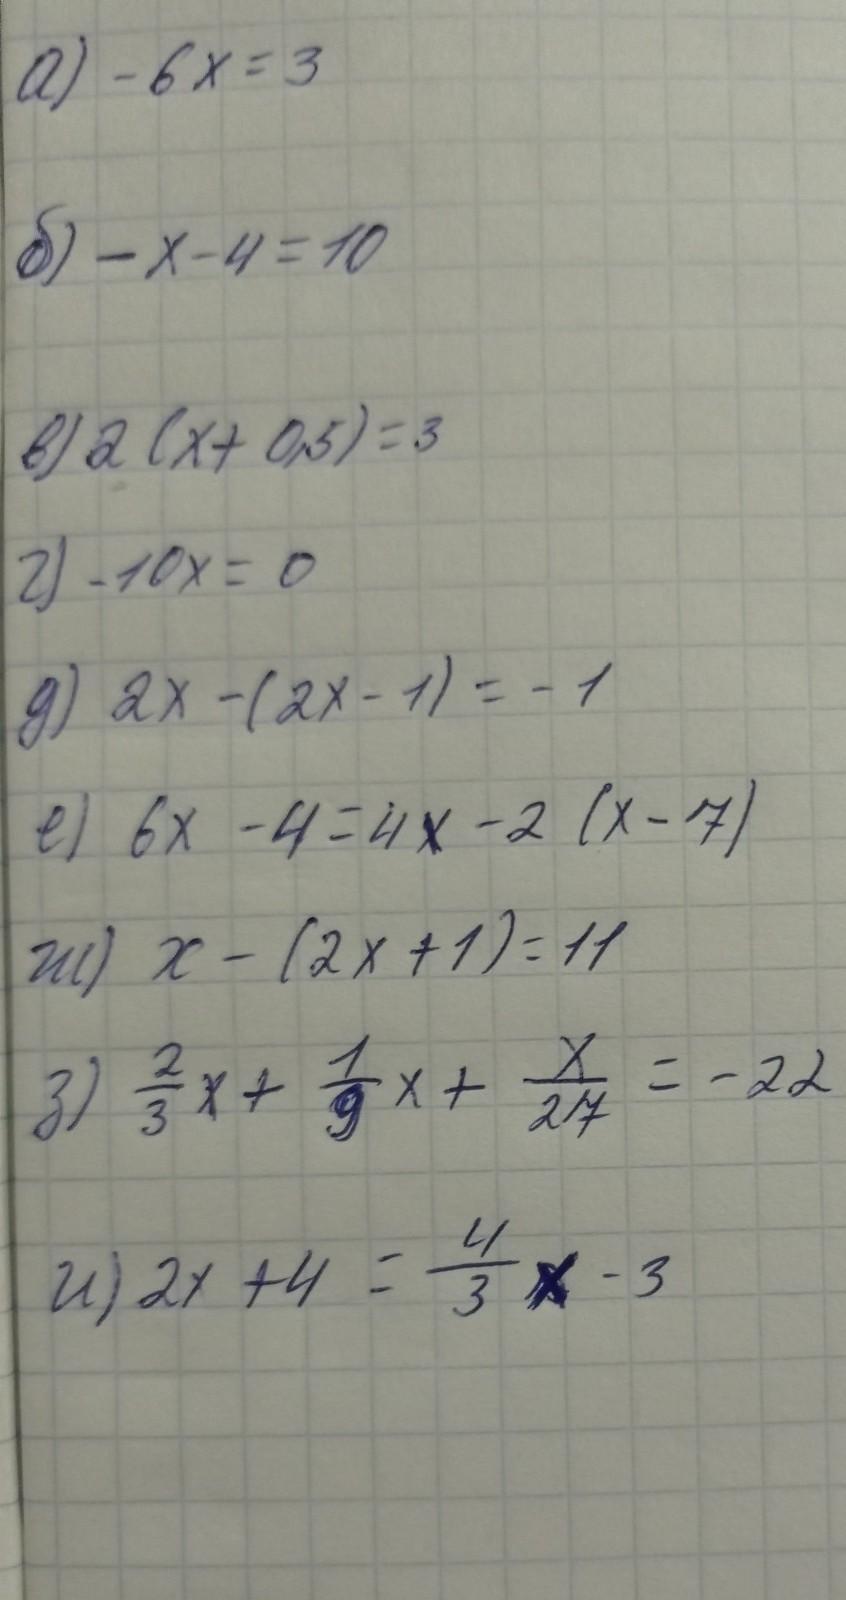 а) -6x = 3
б) -x-4 = 10
в) 2 (x+ 0,5) = 3
г) -10x = 0
д) 2x -(2x - 1) = -1
е) 6x -4 = 4x -2 (x - 7)
ж) x - (2x + 1) = 11
з) 2/3 x + 1/9 x + x/27 = -22
и) 2x +4 = 4/3 x -3